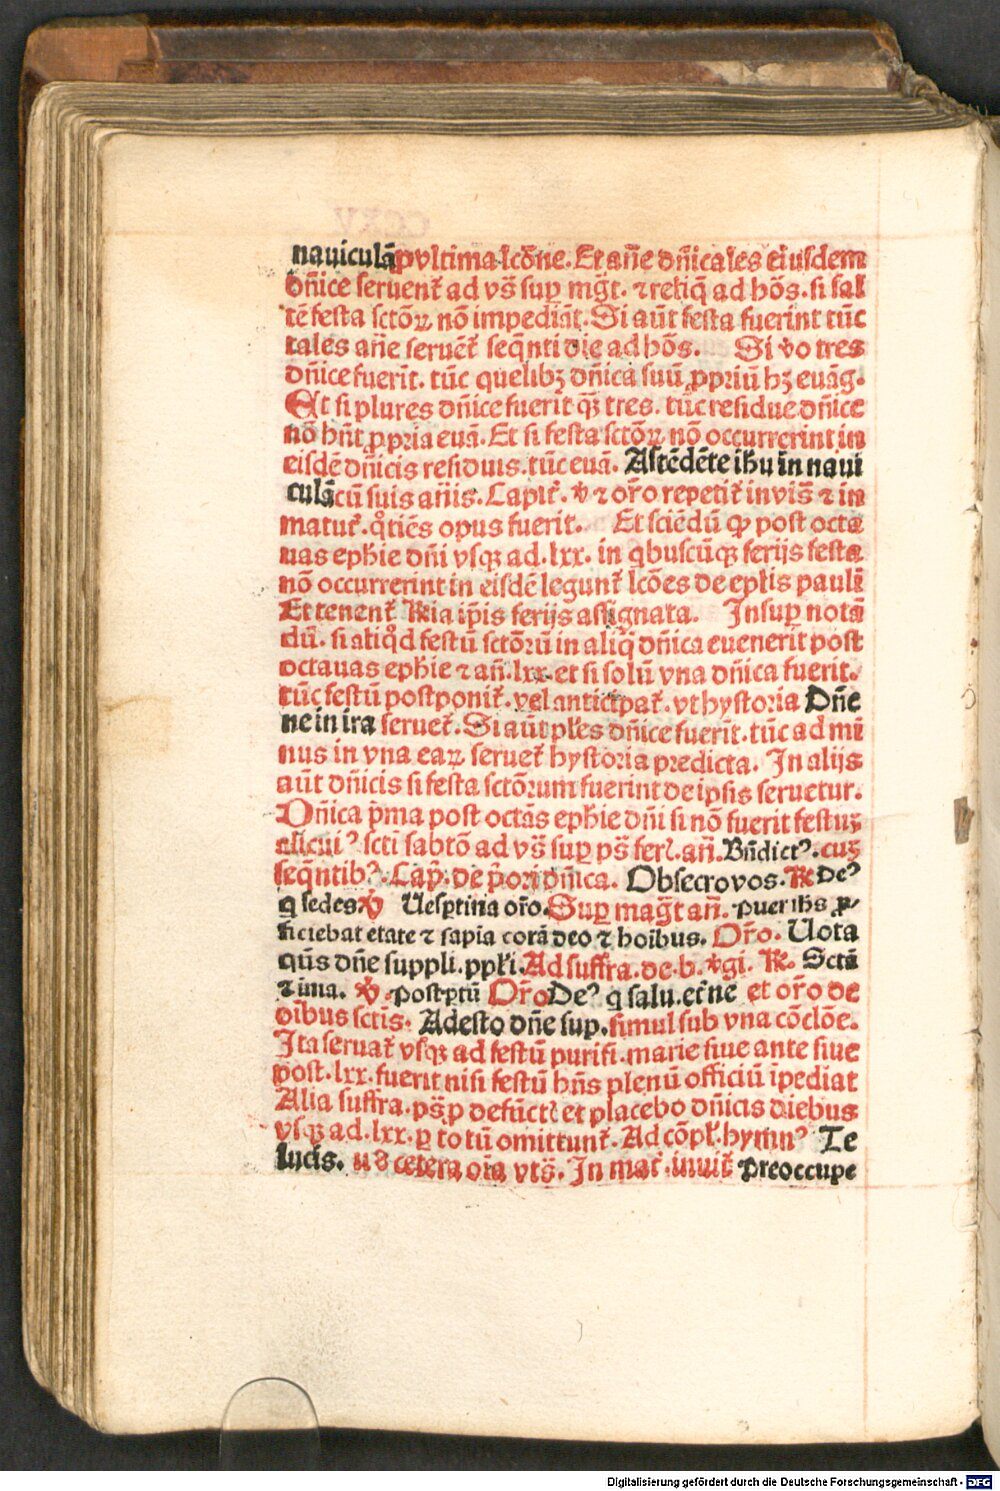 nauiculā pvltima lcōne. Et añe dñicales eiusdem
dñice seruent̄ ad vs̄ suꝑ mḡt. ⁊ reliq̄ ad hōs. si sal
tē festa sctōꝝ nō impediāt. Si aūt festa fuerint tūc
tales añe seruēt̄ seq̄nti die ad hōs. Si ꝟo tres
dñice fuerīt. tūc quelibꝫ dñica suū ꝓpriū hꝫ euāg.
Et si plures dñice fuerīt q̄ꝫ tres. tūc residue dñice
nō hn̄t ꝓpria euā. Et si festa sctōꝝ nō occurrerint in
eisdē dñicis residuis. tūc euā. Ascēdēte ihu in naui
culā cū suis añis. Capit̄. ꝟ ⁊ or̄o repetit̄ in vis̄ ⁊ in
matut̄. q̊tiēs opus fuerit. Et sciēdū ꝙ post octa
uas ephie dñi vsqꝫ ad .lxx. in qbuscūqꝫ ferijs festa
nō occurrerint in eisdē legunt̄ lcōes de epl̄is pauli
Et tenent̄ ℞ia ip̄is ferijs assignata. Insuꝑ notā
dū. si aliq̊d festū sctōrū in aliq̄ dñica euenerit post
octauas ephie ⁊ añ .lxx. et si solū vna dñica fuerit.
tūc festū postponit̄. vel anticipat̄. vt hystoria Dñe
ne in ira seruet̄. Si aūt pl̄es dñice fuerīt. tūc ad mi
nus in vna eaꝝ seruet̄ hystoria predicta. In alijs
aūt dñicis si festa sctōrum fuerint de ipsis seruetur.
Dñica p̄ma post octās ephie dñi si nō fuerit festuꝫ
alicuiꝰ scti sabtō ad vs̄ suꝑ ps̄ feri. añ. Bn̄dictꝰ. cuꝫ
seq̄ntibꝰ. Cap̄. de p̄ori dñica. Obsecro vos. ℞ Deꝰ
q sedes ꝟ Uesptina or̄o. Suꝑ maḡt añ. Puer ihs ꝓ
ficiebat etate ⁊ sapīa corā deo ⁊ hoibus. Or̄o. Uota
qūs dñe suppli. ppl̄i. Ad suffra. de .b. ꝟgi. ℞. Sctā
⁊ īma. ꝟ. Post ꝑtū Or̄o Deꝰ q salu. et̄ne et or̄o de
oībus sctīs. Adesto dñe sup. simul sub vna cōclōe.
Ita seruat̄ vsqꝫ ad festū purifi. marie siue ante siue
post .lxx. fuerit nisi festū hñs plenū officiū īpediat
Alia suffra. ps̄ ꝓ defūctꝭ et placebo dñicis diebus
vsqꝫ ad .lxx. ꝑ totū omittunt̄. Ad cōpl̄. hymnꝰ Te
lucis. cetera oīa vts̄. In mat̄. inuit̄ Preoccupe
Digitalisierung gefördert durch die Deutsche Forschungsgemeinschaft - DFG